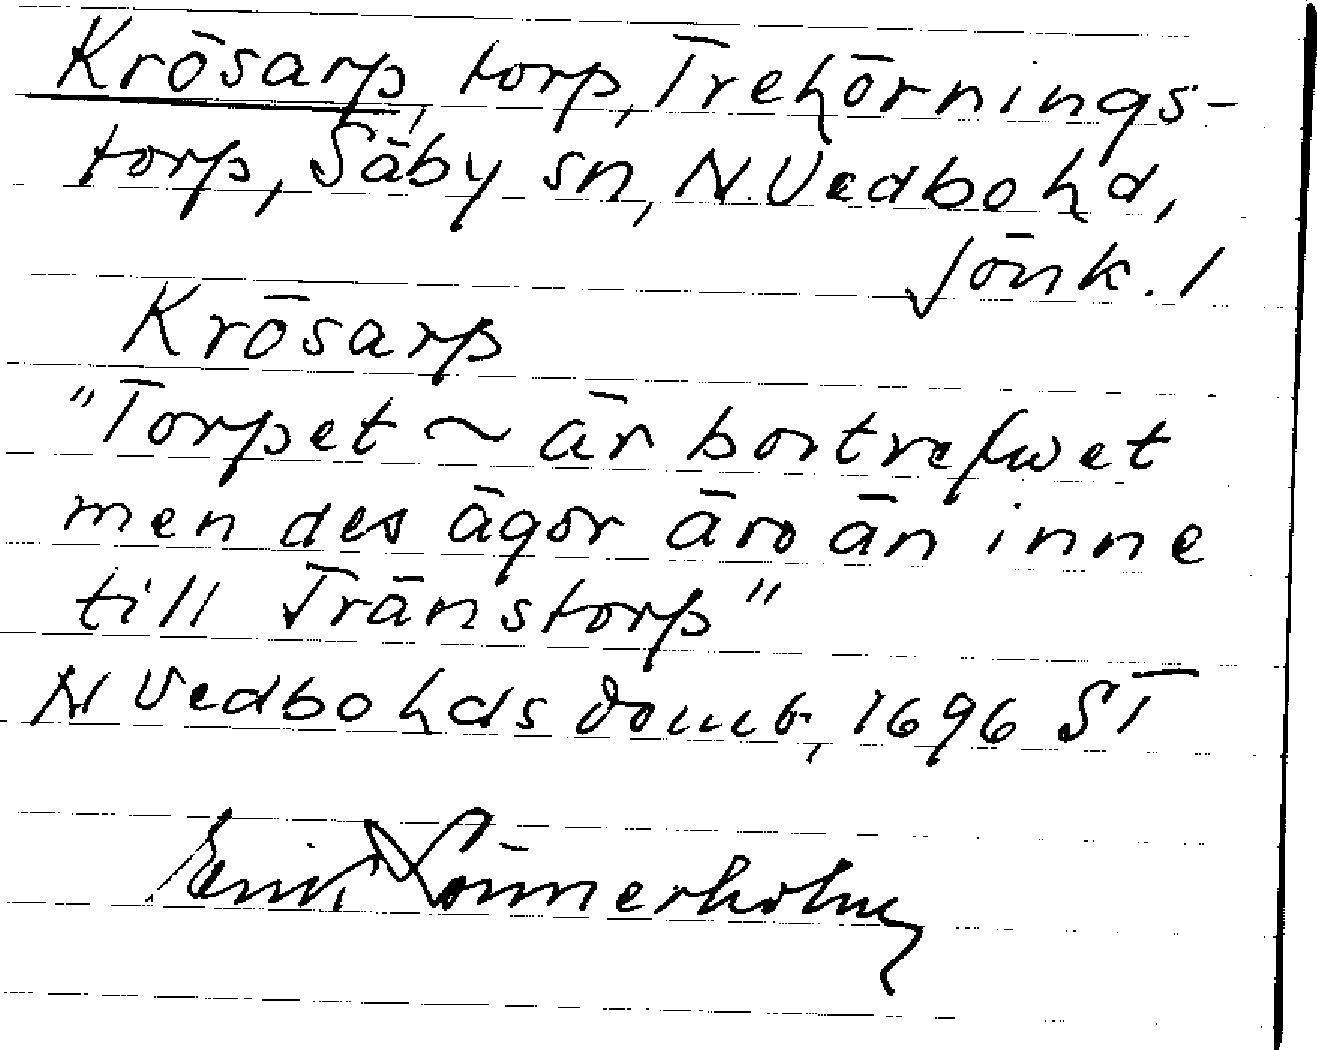 Krösarp, torp, Trehörnings-
torp, Säby sn, N. Vedbo hd,
Jönk. l
Krösarp
"Torpet ~ är bortrefwet
men des ägor äro än inne
till Tränstorp"
N Vedbo hds domb, 1696 ST